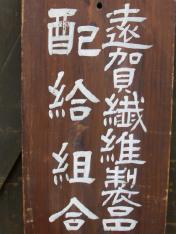 遠賀繊維製品
配給組合